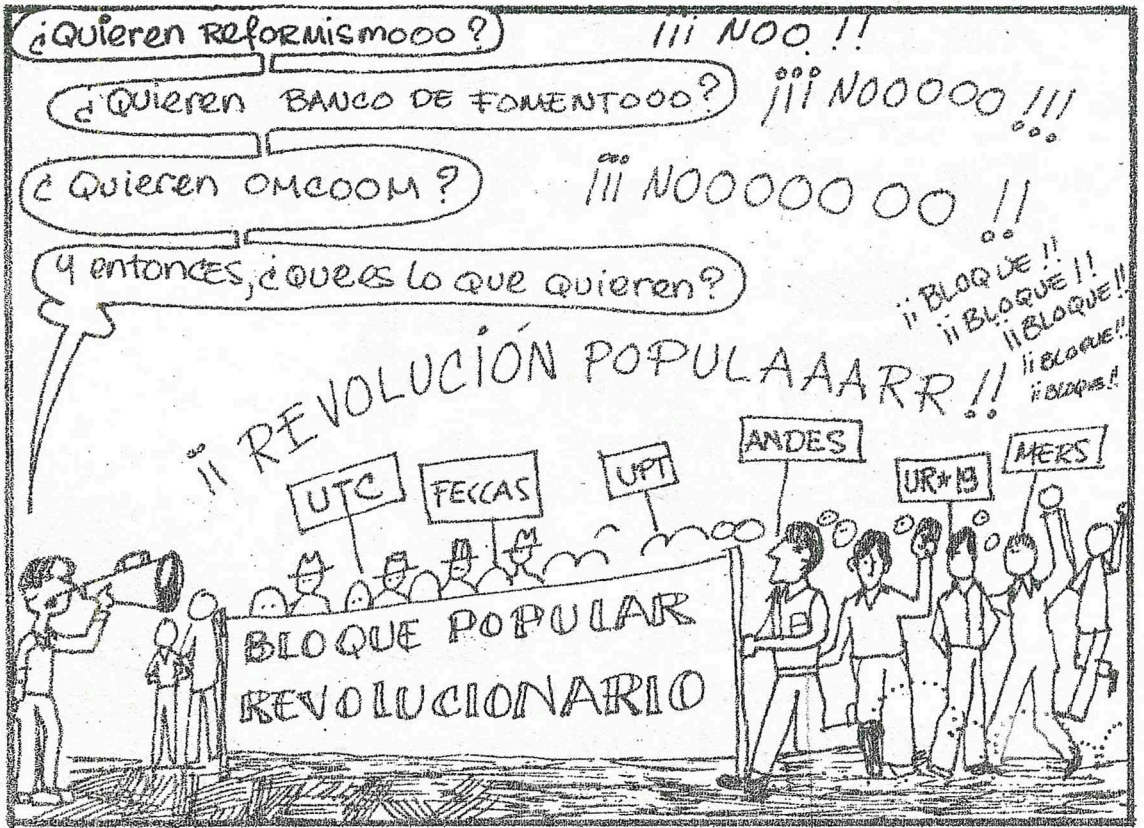 ¿Quieren REFORMISMOOO?
¡¡¡ NOO !!
¿Quieren BANCO DE FOMENTOOO?
¡¡¡ NOOOOO !!!
¿Quieren OMCOOM?
¡¡¡ NOOOOO OO !!
Y entonces, ¿QUE ES LO QUE QUIEREN?
¡¡ BLOQUE !!
¡¡ BLOQUE !!
¡¡ BLOQUE !!
¡¡ BLOQUE !!
¡¡ BLOQUE !!
¡¡ REVOLUCIÓN POPULAAARR !!
UTC
FECCAS
UPT
ANDES
UR*19
MERS
BLOQUE POPULAR
REVOLUCIONARIO